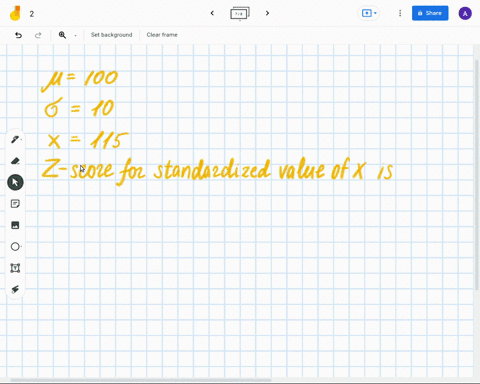 2
Share
A
Set background
Clear frame
μ = 100
σ = 10
x = 115
Z-score for standardized value of x is